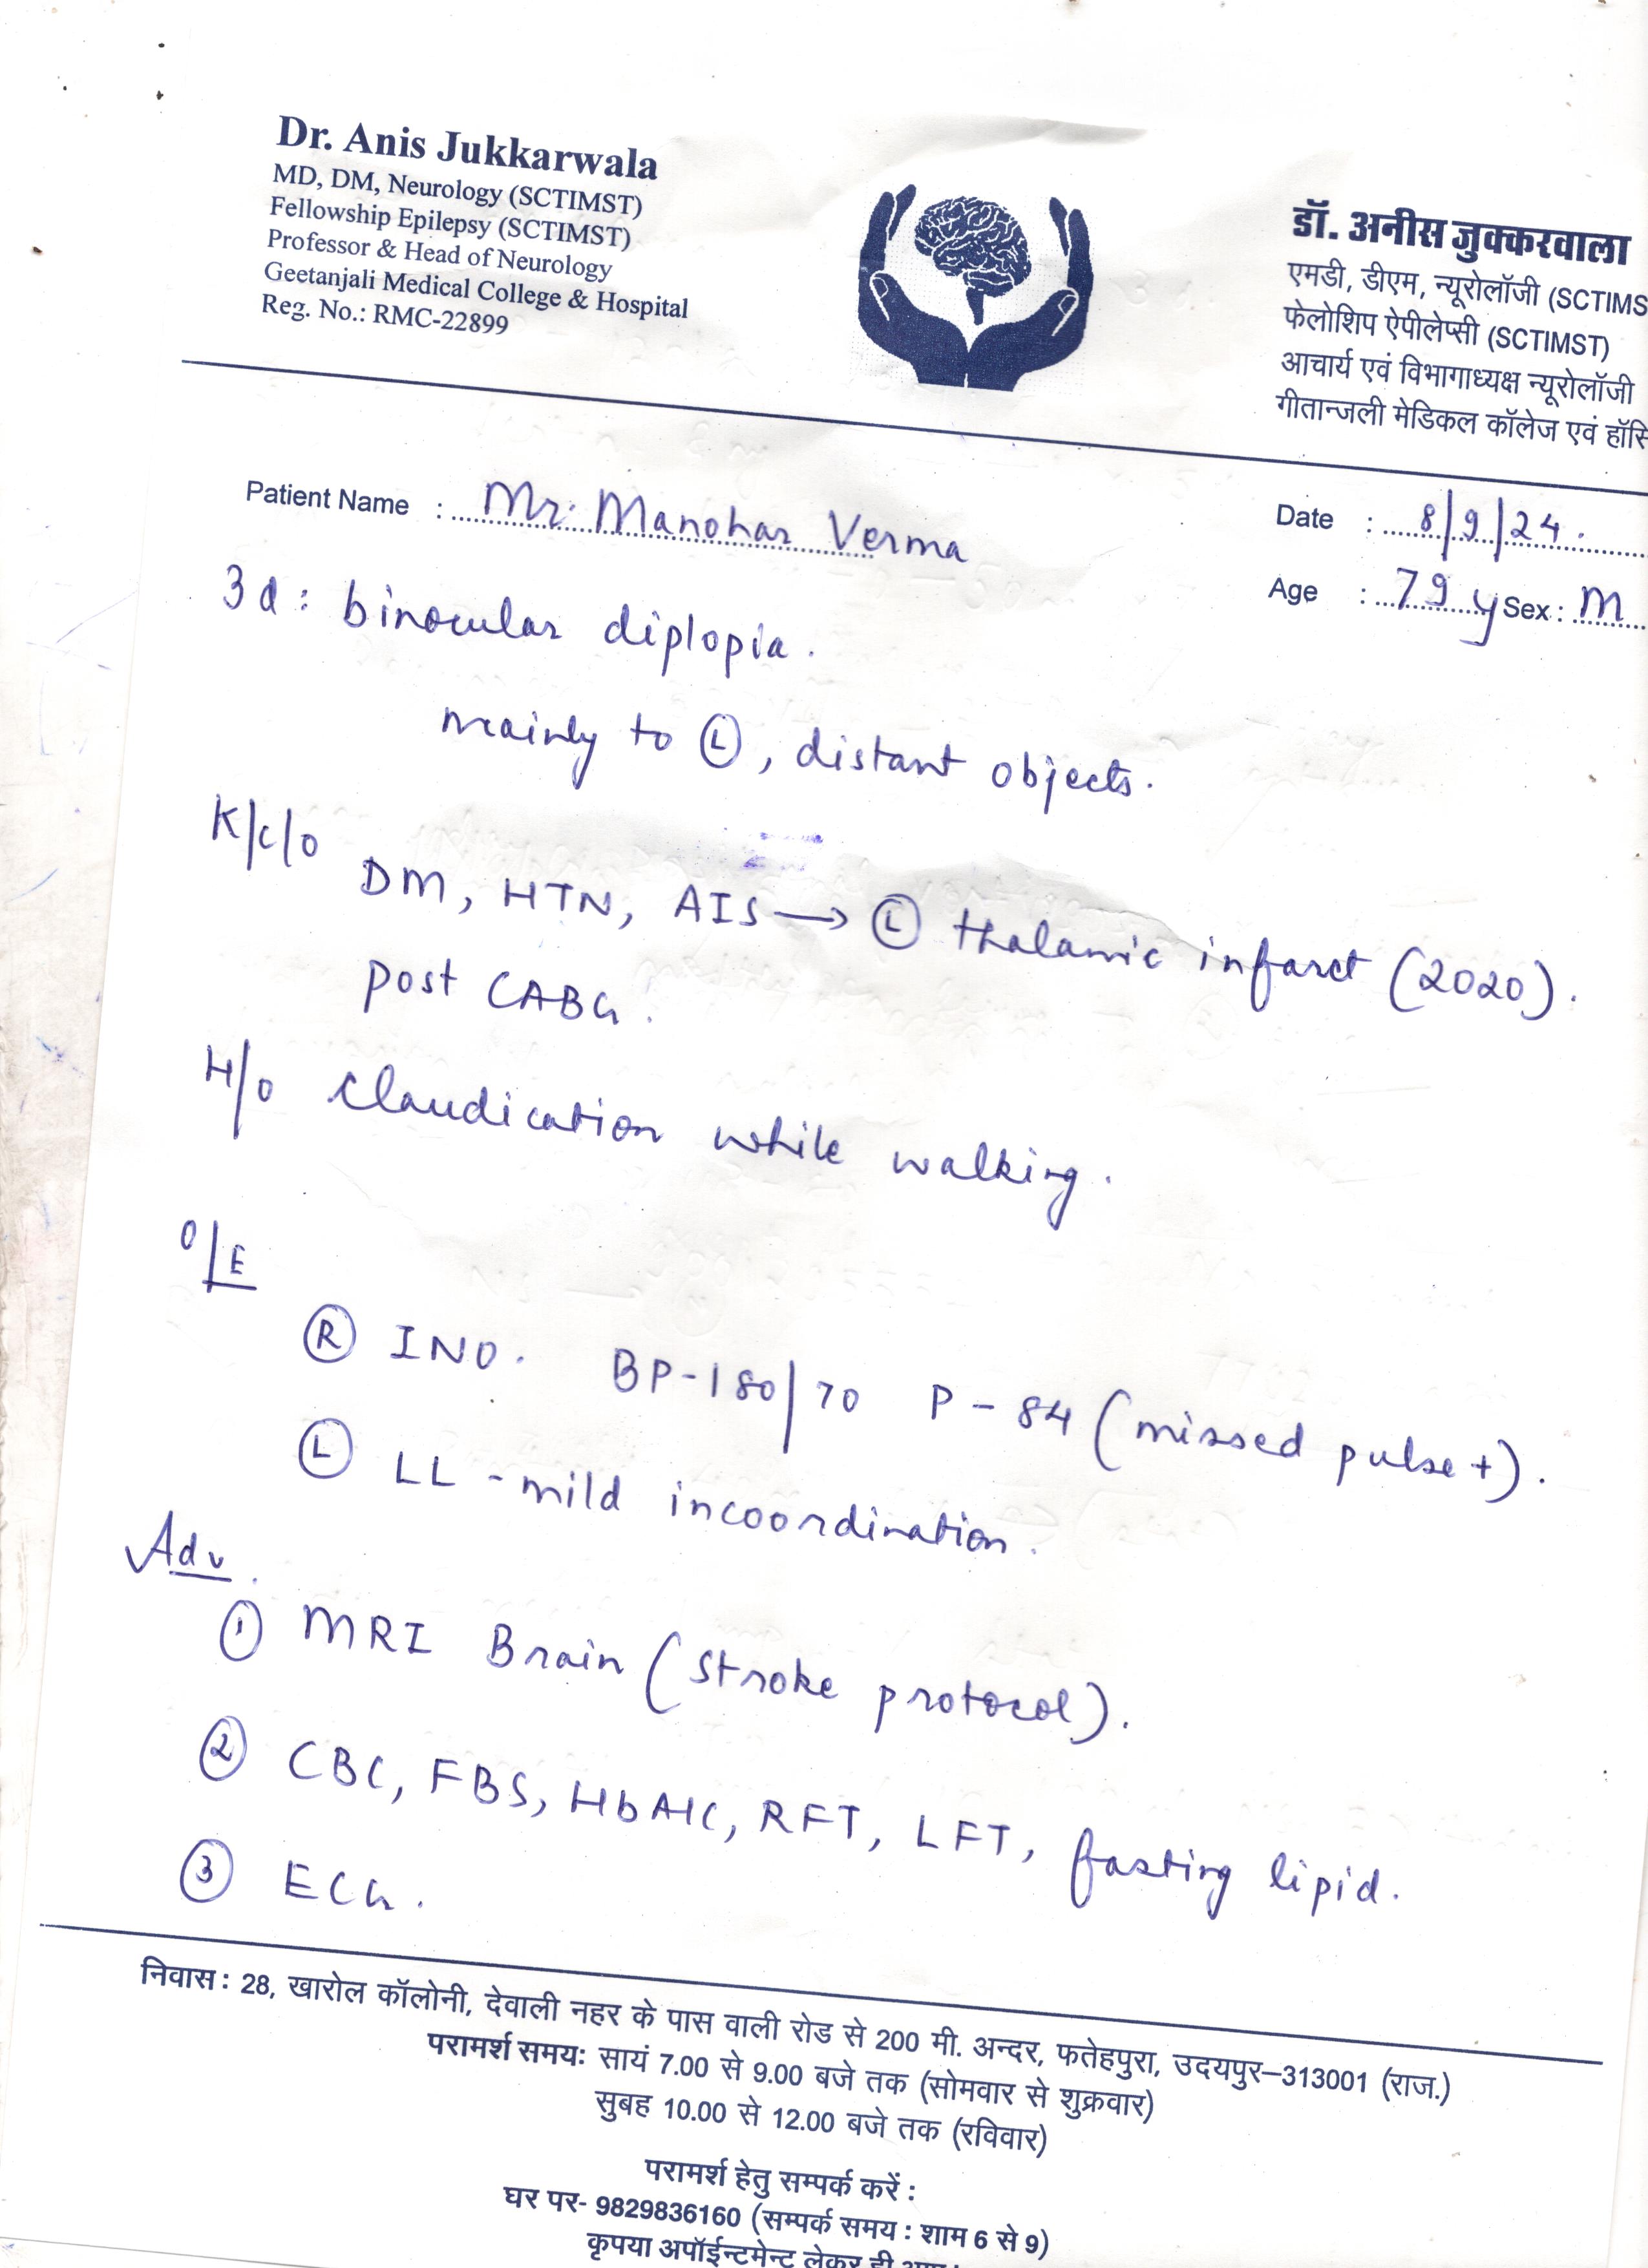 Dr. Anis Jukkarwala
MD, DM, Neurology (SCTIMST)
Fellowship Epilepsy (SCTIMST)
Professor & Head of Neurology
Geetanjali Medical College & Hospital
Reg. No.: RMC-22899
डॉ. अनीस जुक्करवाला
एमडी, डीएम, न्यूरोलॉजी (SCTIMS
फेलोशिप ऐपीलेप्सी (SCTIMST)
आचार्य एवं विभागाध्यक्ष न्यूरोलॉजी
गीतान्जली मेडिकल कॉलेज एवं हॉस्पि
Patient Name : Mr. Manohar Verma
Date : 8/9/24.
Age : 79 y Sex : M
3d: binocular diplopia.
mainly to Ⓛ, distant objects.
K/c/o DM, HTN, AIS → Ⓛ thalamic infarct (2020).
post CABG.
H/o claudication while walking.
O/E
Ⓡ INO. BP-180/70 P-84 (missed pulse +).
Ⓛ LL - mild incoordination.
Adv.
① MRI Brain (stroke protocol).
② CBC, FBS, HbA1C, RFT, LFT, fasting lipid.
③ ECG.
निवास : 28, खारोल कॉलोनी, देवाली नहर के पास वाली रोड से 200 मी. अन्दर, फतेहपुरा, उदयपुर–313001 (राज.)
परामर्श समयः सायं 7.00 से 9.00 बजे तक (सोमवार से शुक्रवार)
सुबह 10.00 से 12.00 बजे तक (रविवार)
परामर्श हेतु सम्पर्क करें :
घर पर- 9829836160 (सम्पर्क समय : शाम 6 से 9)
कृपया अपॉईन्टमेन्ट लेकर ही